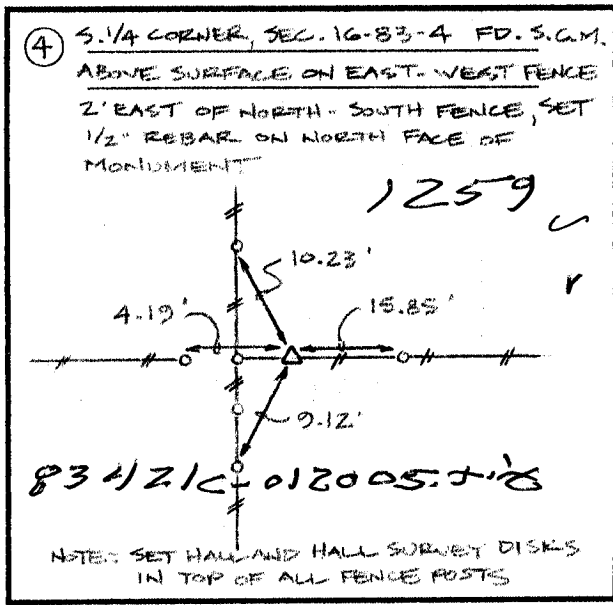 4 S.1/4 CORNER, SEC. 16-83-4 FD. S.G.M.
ABOVE SURFACE ON EAST-WEST FENCE
2' EAST OF NORTH-SOUTH FENCE, SET
1/2" REBAR ON NORTH FACE OF
MONUMENT
1259
10.23'
4.19'
15.85'
9.12'
83421C-012005.tif
NOTE: SET HALL AND HALL SURVEY DISKS
IN TOP OF ALL FENCE POSTS